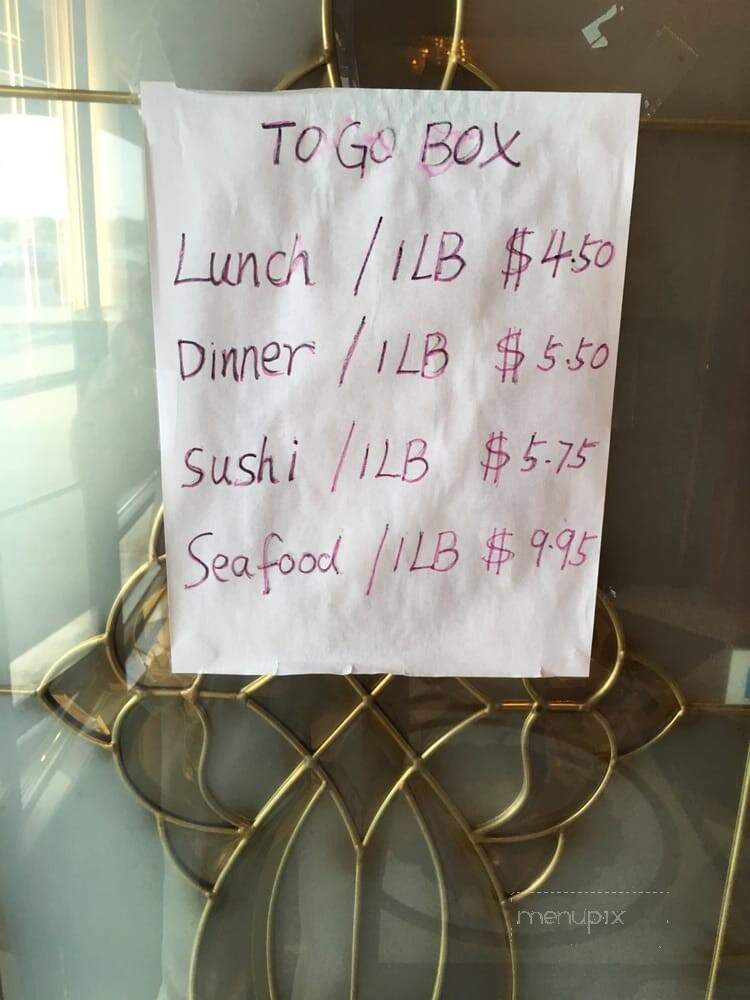 TO GO BOX
Lunch / 1LB $4.50
Dinner / 1LB $5.50
Sushi / 1LB $5.75
Seafood / 1LB $9.95
menupix